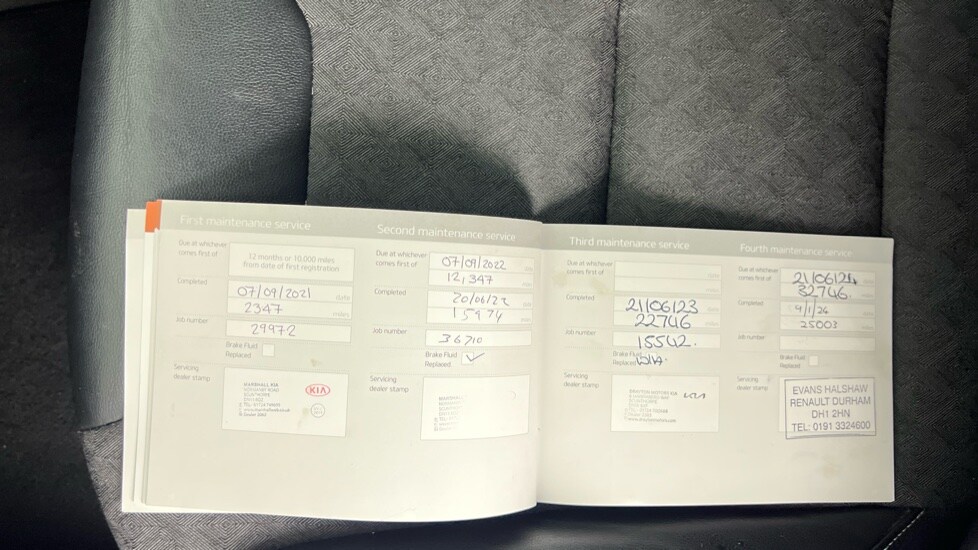 First maintenance service
Due at whichever
comes first of
12 months or 10,000 miles
from date of first registration
Completed
07/09/2021 date
2347 miles
Job number
29972
Brake Fluid
Replaced
Servicing
dealer stamp
MARSHALL KIA
KIA
Second maintenance service
Due at whichever
comes first of
07/09/2022
12,347
Completed
15974
Job number
36710
Brake Fluid
Replaced
Servicing
dealer stamp
Third maintenance service
Due at whichever
comes first of
Completed
21/06/23
22746
Job number
15542.
Brake Fluid
Replaced
Servicing
dealer stamp
KIA
Fourth maintenance service
Due at whichever
comes first of
21/06/24
32746.
Completed
9/1/26
25003
Job number
Brake Fluid
Replaced
Servicing
dealer stamp
EVANS HALSHAW
RENAULT DURHAM
DH1 2HN
TEL: 0191 3324600